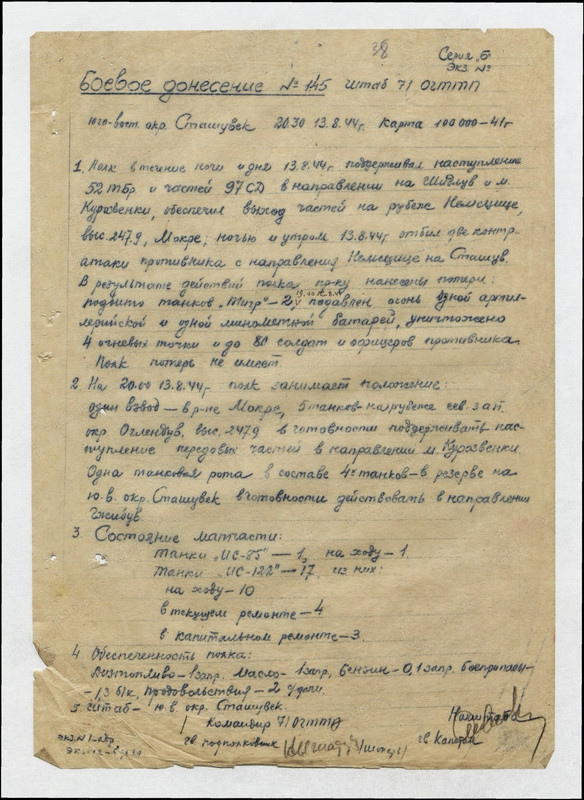 38
Серия „Б"
Экз. №
Боевое донесение № 145 штаб 71 ОГТТП
юго-вост. окр. Сташувек 20.30 13.8.44г. Карта 100 000 – 41г
1. Полк в течение ночи и дня 13.8.44г. поддерживал наступление
52 тбр и частей 97 СД в направлении на Шидлув и м.
Курозвенки, обеспечил выход частей на рубеж Немсцице,
выс. 247.9, Мокре; ночью и утром 13.8.44г. отбил две контр-
атаки противника с направления Немсцице на Сташув.
В результате действий полка пр-ку нанесены потери:
подбито танков „Тигр" – 2, подавлен огонь одной артил-
лерийской и одной минометной батарей, уничтожено
4 огневых точки и до 80 солдат и офицеров противника.
Полк потерь не имеет.
2. На 20.00 13.8.44г. полк занимает положение:
один взвод – в р-не Мокре, 5 танков – на рубеже сев. зап.
окр. Оглендув, выс. 247.9 в готовности поддерживать нас-
тупление передовых частей в направлении м. Курозвенки.
Одна танковая рота в составе 4х танков – в резерве на
ю.в. окр. Сташувек в готовности действовать в направлении
Гжибув
3. Состояние матчасти:
танки „ИС-85" – 1, на ходу – 1.
Танки „ИС-122" – 17, из них:
на ходу – 10
в текущем ремонте – 4
в капитальном ремонте – 3.
4 Обеспеченность полка:
Дизтопливо – 1 запр. Масло – 1 запр, бензин – 0,1 запр. боеприпасы –
– 1,3 б/к, продовольствия – 2 с/дачи.
5. Штаб – ю.в. окр. Сташувек.
Командир 71 ОГТТП
гв подполковник
Нач. штаба
гв капитан
Экз. № 1 – адр.